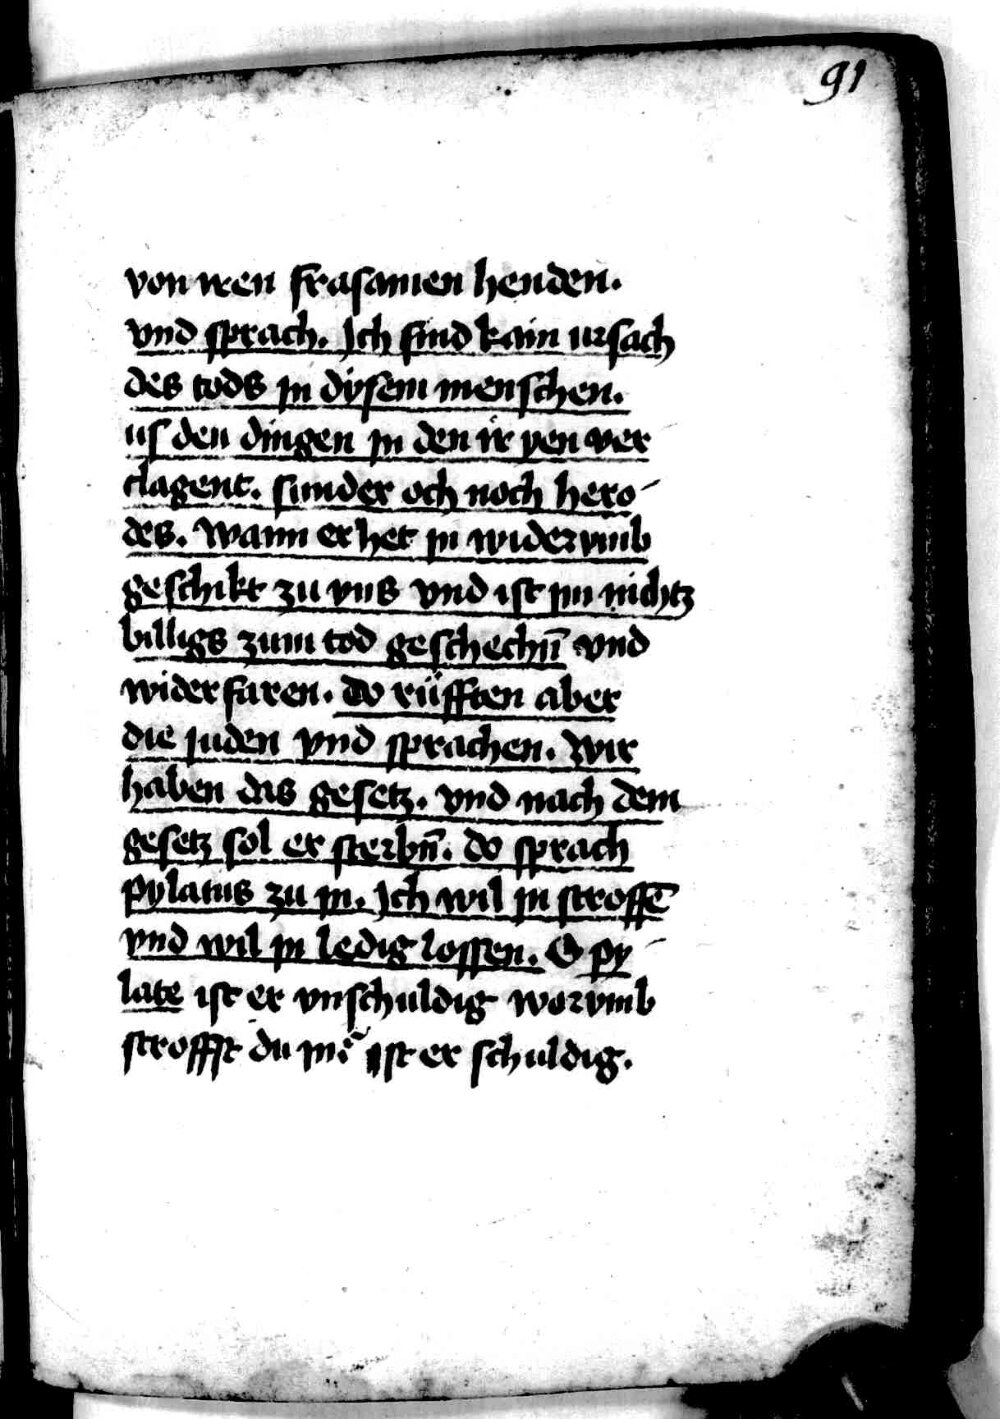 91
von iren frasamen henden.
vnd sprach. Ich find kain ursach
des tods jn dysem menschen.
us den dingen jn den ir yen ver
clagent. sunder och noch hero
des. Wann er het jn widervmb
geschikt zu vns vnd ist jm nichtz
billigs zum tod geschechn̄ vnd
widerfaren. do rüfften aber
die juden vnd sprachen. Wir
haben das gesetz. vnd nach dem
gesetz sol er sterbn̄. do sprach
pylatus zu jn. Ich wil jn stroffē
vnd wil jn ledig lossen. O py
late ist er vnschuldig worvmb
stroffst du jn ist er schuldig.